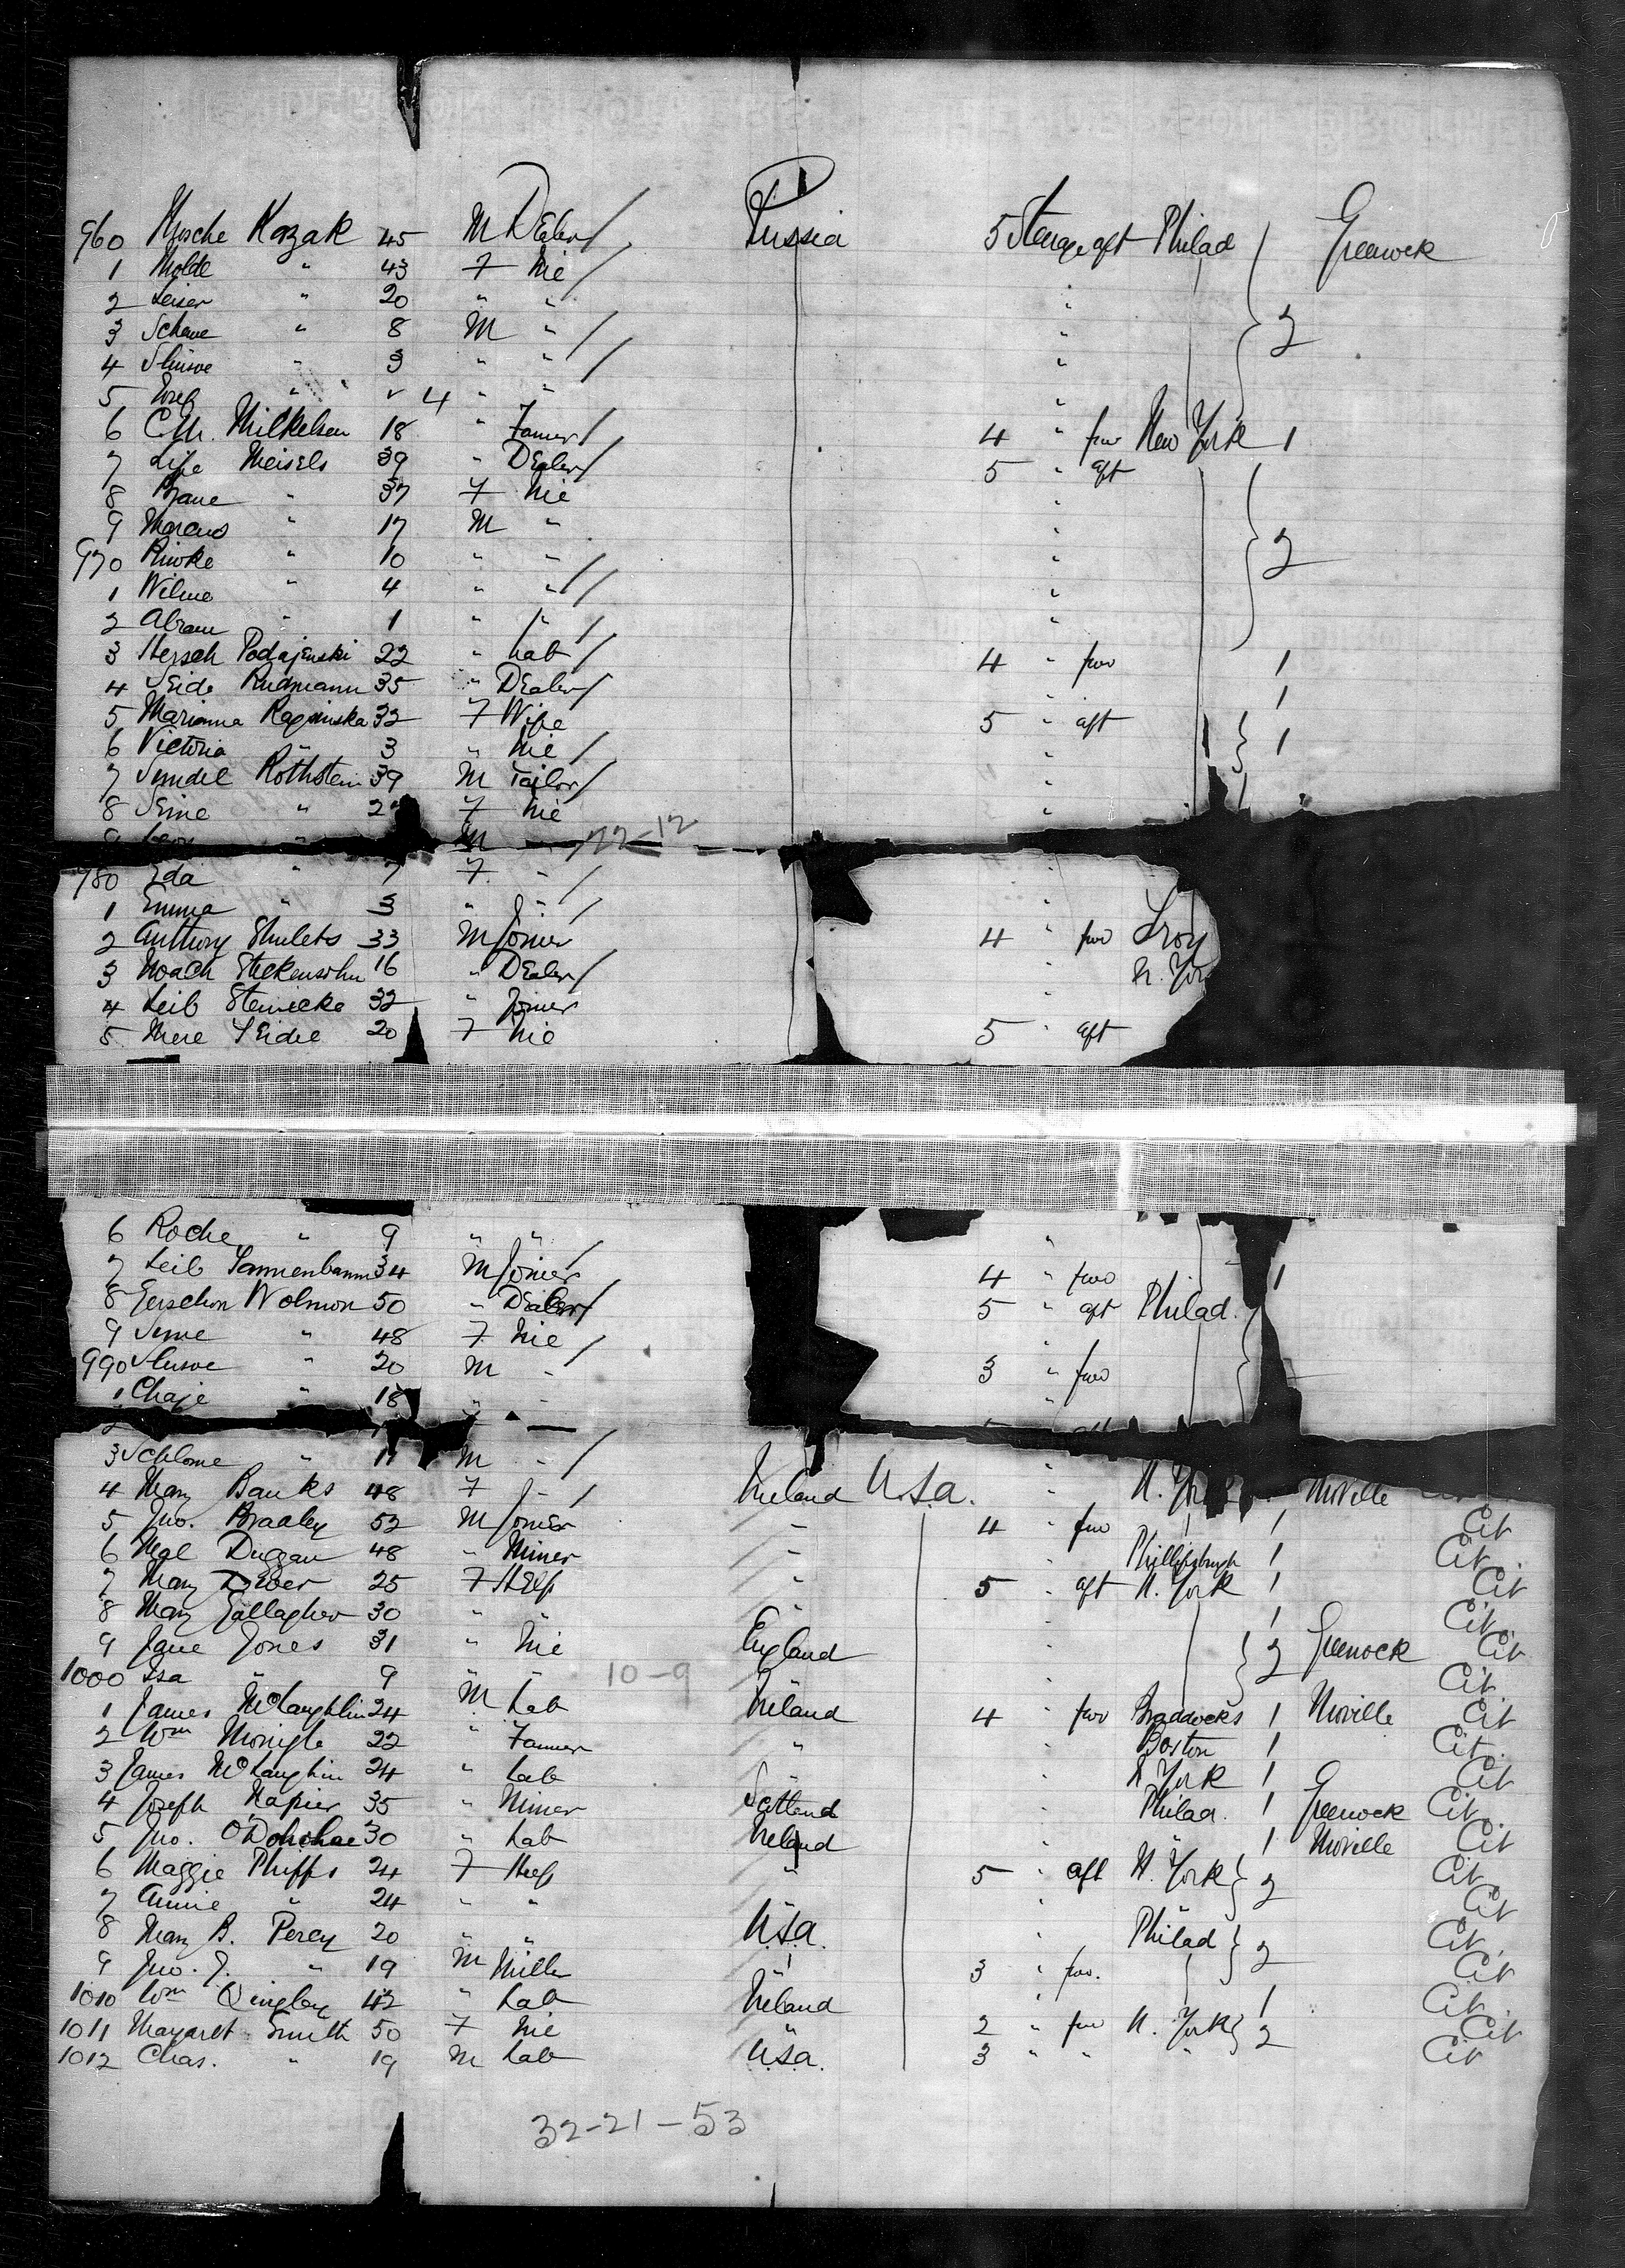 960 Mosche Kozak 45 M Dealer Russia 5 Steerage aft Philad Greenock
1 Molde " 43 F Nie "
2 Leiser " 20 " " "
3 Schaue " 8 M " " 2
4 " 3 " " "
5 " 4 " " "
6 C.M. Mikkelsen 18 " Farmer 4 " fwd New York 1
7 Meisels 39 " Dealer 5 " aft
8 " 37 F Nie "
9 Marcus " 17 M " "
970 Riwke " 10 " " " 2
1 Wilme " 4 " " "
2 Abram " 1 " " "
3 Hersch Podajenski 22 " Lab 4 " fwd 1
4 Seide Rudmann 35 " Dealer 1
5 Marianna Raginska 32 F Wife 5 " aft
6 Victoria " 3 " Nie " 1
7 Sendel Rothstein 39 M Tailor "
8 Seine " F Nie "
9 " M 12-12
980 Eda " 7 F " "
1 Emma " 3 " " "
2 Anthony Shulets 33 M Joiner 4 " fwd Troy
3 Noach Steckensohn 16 " Dealer " N. Yor
4 Leib Steinicke 32 " Joiner "
5 Mere Seidel 20 F Nie 5 " aft
6 Roche " 9 " " "
7 Leib Tannenbaum 34 M Joiner 4 " fwd 1
8 Gerschon Wolmon 50 " Dealer 5 " aft Philad.
9 " 48 F Nie
990 " 20 M " 3 " fwd
1 Chaje " 18 " " "
3 Schlome " 11 M " "
4 Mary Banks 48 F " Ireland U.S.a. " N. York Moville
5 Jno. Bradley 52 M Joiner " 4 " fwd 1 Cit
6 Duggan 48 " Miner " " Phillipsburgh 1 Cit
7 Mary Diver 25 F Help " 5 " aft N. York 1 Cit
8 Mary Gallagher 30 " " " " 1 Cit
9 Jane Jones 31 " Nie England " 2 Greenock Cit
1000 Isa " 9 " " 10-9 " Cit
1 James McLaughlin 24 M Lab Ireland 4 " fwd Braddocks 1 Moville Cit
2 Wm Monigle 22 " Farmer " " Boston 1 Cit
3 James McLaughlin 24 " Lab " " N York 1 Cit
4 Joseph Napier 35 " Miner Scotland " Philad. 1 Greenock Cit
5 Jno. O'Donohae 30 " Lab Ireland " " 1 Moville Cit
6 Maggie Phipps 24 F Help " 5 " aft N. York 2 Cit
7 Annie " 24 " " " " Cit
8 Mary B. Percy 20 " " U.S.a. " Philad 2 Cit
9 Jno. J. " 19 M Miller " 3 " fwd. " Cit
1010 Wm Quigley 42 " Lab Ireland " " 1 Cit
1011 Margaret Smith 50 F Nie " 2 " fwd N. York 2 Cit
1012 Chas. " 19 M Lab U.S.a. 3 " " " Cit
32-21-53